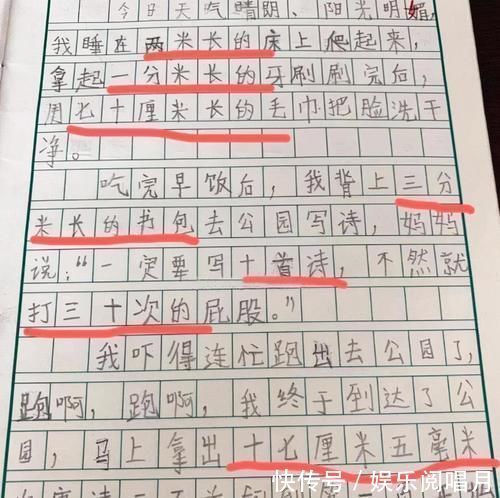 今日天气晴朗、阳光明媚,
我睡在两米长的床上爬起来,
拿起一分米长的牙刷刷完后,
用七十厘米长的毛巾把脸洗干
净。
吃完早饭后,我背上三分
米长的书包去公园写诗,妈妈
说:“一定要写十首诗,不然就
打三十次的屁股。”
我吓得连忙跑出去公园了,
跑啊,跑啊,我终于到达了公
园,马上拿出十七厘米五毫米
快传号/娱乐阅唱月